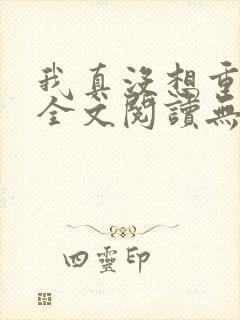 我真沒想重
全文閱讀無
四靈印